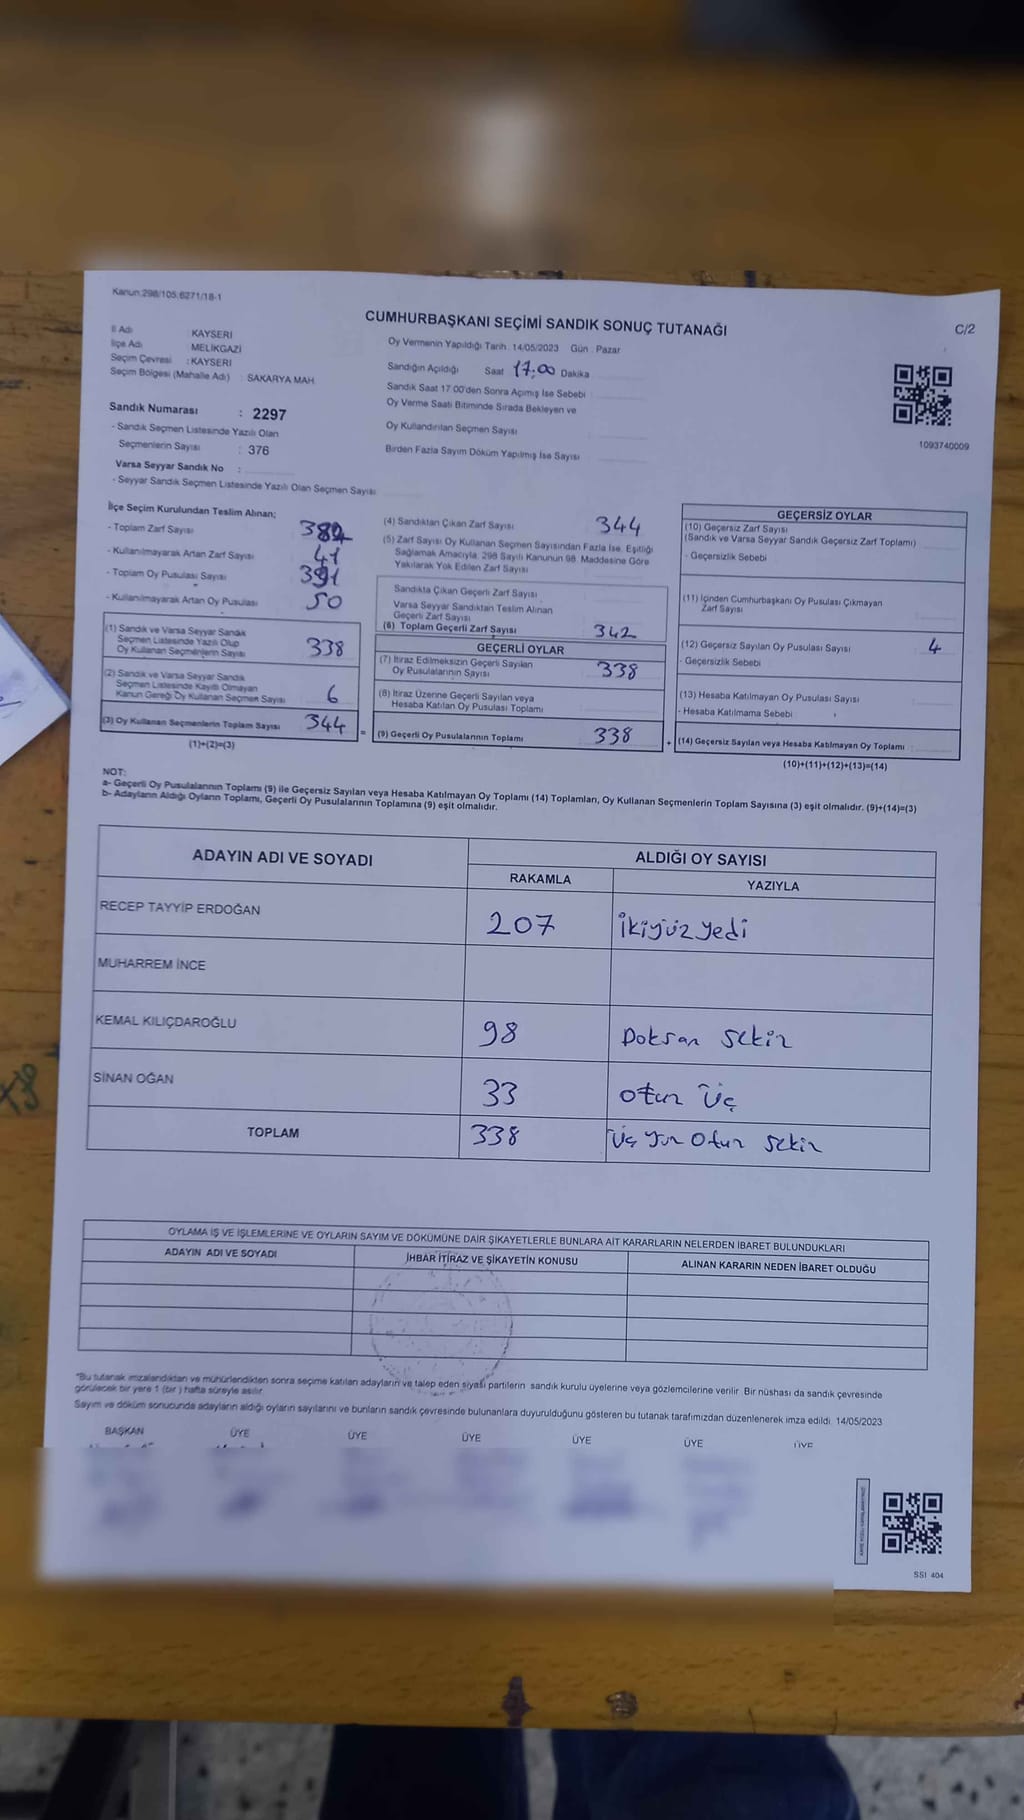 Kanun:298/105;6271/18-1
CUMHURBAŞKANI SEÇİMİ SANDIK SONUÇ TUTANAĞI
C/2
İl Adı : KAYSERİ
İlçe Adı : MELİKGAZİ
Seçim Çevresi : KAYSERİ
Seçim Bölgesi (Mahalle Adı) : SAKARYA MAH.
Oy Vermenin Yapıldığı Tarih :14/05/2023 Gün : Pazar
Sandığın Açıldığı Saat 17:00 Dakika
Sandık Saat 17:00'den Sonra Açımış İse Sebebi
Oy Verme Saati Bitiminde Sırada Bekleyen ve
Oy Kullandırılan Seçmen Sayısı
Birden Fazla Sayım Döküm Yapılmış İse Sayısı
1093740009
Sandık Numarası : 2297
- Sandık Seçmen Listesinde Yazılı Olan
Seçmenlerin Sayısı : 376
Varsa Seyyar Sandık No :
- Seyyar Sandık Seçmen Listesinde Yazılı Olan Seçmen Sayısı
İlçe Seçim Kurulundan Teslim Alınan;
- Toplam Zarf Sayısı
- Kullanılmayarak Artan Zarf Sayısı 41
- Toplam Oy Pusulası Sayısı 391
- Kullanılmayarak Artan Oy Pusulası 50
(1) Sandık ve Varsa Seyyar Sandık
Seçmen Listesinde Yazılı Olup
Oy Kullanan Seçmenlerin Sayısı 338
(2) Sandık ve Varsa Seyyar Sandık
Seçmen Listesinde Kayıtlı Olmayan
Kanun Gereği Oy Kullanan Seçmen Sayısı 6
(3) Oy Kullanan Seçmenlerin Toplam Sayısı 344
(1)+(2)=(3)
(4) Sandıktan Çıkan Zarf Sayısı 344
(5) Zarf Sayısı Oy Kullanan Seçmen Sayısından Fazla İse, Eşitliği
Sağlamak Amacıyla, 298 Sayılı Kanunun 98. Maddesine Göre
Yakılarak Yok Edilen Zarf Sayısı
Sandıkta Çıkan Geçerli Zarf Sayısı
Varsa Seyyar Sandıktan Teslim Alınan
Geçerli Zarf Sayısı
(6) Toplam Geçerli Zarf Sayısı 342
GEÇERLİ OYLAR
(7) İtiraz Edilmeksizin Geçerli Sayılan
Oy Pusulalarının Sayısı 338
(8) İtiraz Üzerine Geçerli Sayılan veya
Hesaba Katılan Oy Pusulası Toplamı
= (9) Geçerli Oy Pusulalarının Toplamı 338
GEÇERSİZ OYLAR
(10) Geçersiz Zarf Sayısı
(Sandık ve Varsa Seyyar Sandık Geçersiz Zarf Toplamı)
- Geçersizlik Sebebi
(11) İçinden Cumhurbaşkanı Oy Pusulası Çıkmayan
Zarf Sayısı
(12) Geçersiz Sayılan Oy Pusulası Sayısı 4
- Geçersizlik Sebebi
(13) Hesaba Katılmayan Oy Pusulası Sayısı
- Hesaba Katılmama Sebebi
+ (14) Geçersiz Sayılan veya Hesaba Katılmayan Oy Toplamı :
(10)+(11)+(12)+(13)=(14)
NOT:
a- Geçerli Oy Pusulalarının Toplamı (9) ile Geçersiz Sayılan veya Hesaba Katılmayan Oy Toplamı (14) Toplamları, Oy Kullanan Seçmenlerin Toplam Sayısına (3) eşit olmalıdır. (9)+(14)=(3)
b- Adayların Aldığı Oyların Toplamı, Geçerli Oy Pusulalarının Toplamına (9) eşit olmalıdır.
ADAYIN ADI VE SOYADI
ALDIĞI OY SAYISI
RAKAMLA YAZIYLA
RECEP TAYYİP ERDOĞAN 207 İkiyüz yedi
MUHARREM İNCE
KEMAL KILIÇDAROĞLU 98 Doksan sekiz
SİNAN OĞAN 33 otuz üç
TOPLAM 338 Üç yüz Otuz sekiz
OYLAMA İŞ VE İŞLEMLERİNE VE OYLARIN SAYIM VE DÖKÜMÜNE DAİR ŞİKAYETLERLE BUNLARA AİT KARARLARIN NELERDEN İBARET BULUNDUKLARI
ADAYIN ADI VE SOYADI İHBAR İTİRAZ VE ŞİKAYETİN KONUSU ALINAN KARARIN NEDEN İBARET OLDUĞU
*Bu tutanak imzalandıktan ve mühürlendikten sonra seçime katılan adayların ve talep eden siyasi partilerin sandık kurulu üyelerine veya gözlemcilerine verilir. Bir nüshası da sandık çevresinde
görülecek bir yere 1 (bir ) hafta süreyle asılır.
Sayım ve döküm sonucunda adayların aldığı oyların sayılarını ve bunların sandık çevresinde bulunanlara duyurulduğunu gösteren bu tutanak tarafımızdan düzenlenerek imza edildi. 14/05/2023
BAŞKAN ÜYE ÜYE ÜYE ÜYE ÜYE ÜYE
SSI 404